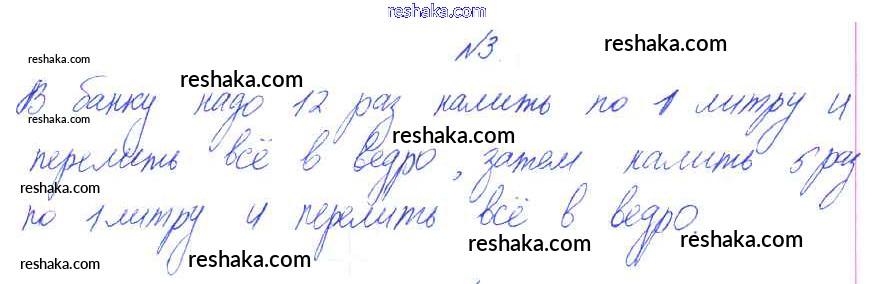 reshaka.com
№3.
reshaka.com
reshaka.com
reshaka.com
В банку надо 12 раз налить по 1 литру и
reshaka.com
reshaka.com
перелить всё в ведро, затем налить 5 раз
reshaka.com
по 1 литру и перелить всё в ведро.
reshaka.com
reshaka.com
reshaka.com
reshaka.com